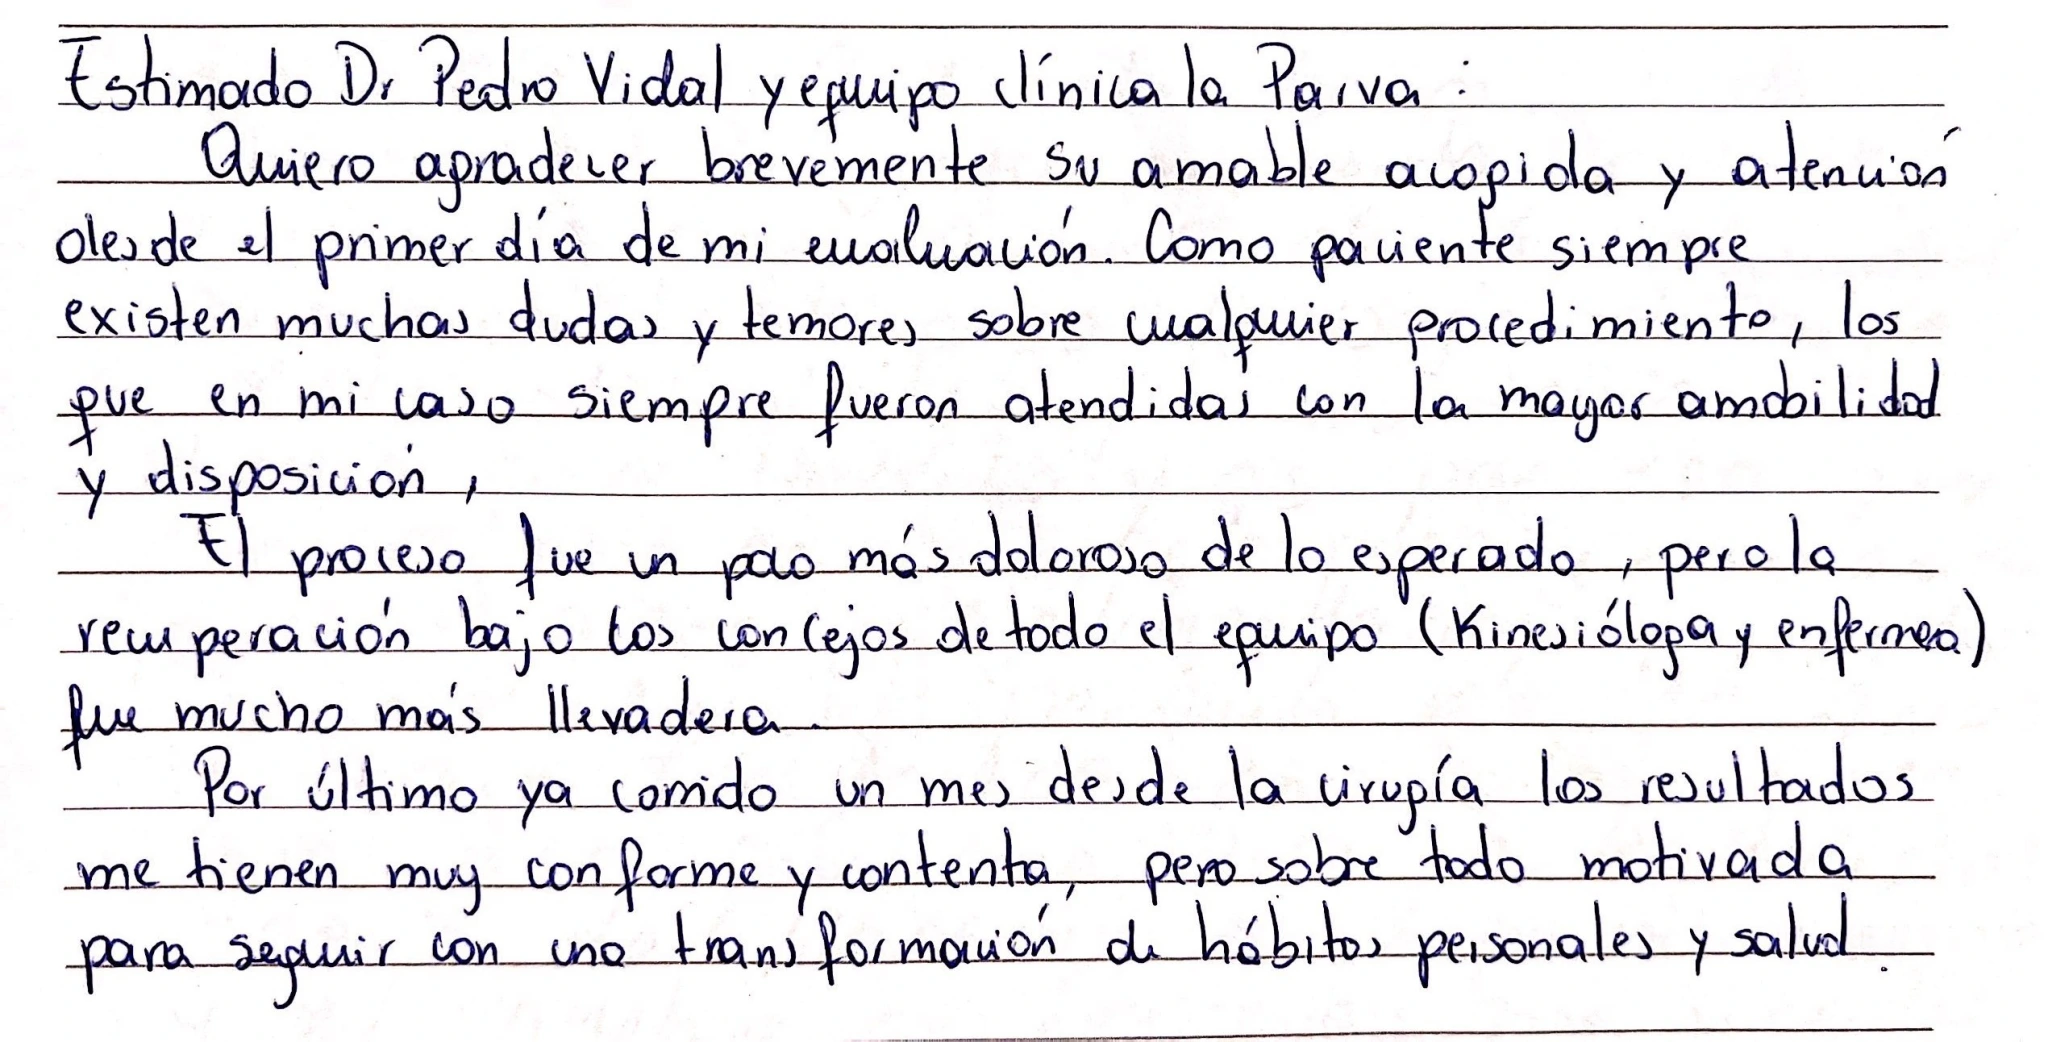 Estimado Dr Pedro Vidal y equipo clínica la Parva :
Quiero agradecer brevemente su amable acogida y atención
desde el primer día de mi evaluación. Como paciente siempre
existen muchas dudas y temores sobre cualquier procedimiento, los
que en mi caso siempre fueron atendidas con la mayor amabilidad
y disposición,
El proceso fue un poco más doloroso de lo esperado, pero la
recuperación bajo los concejos de todo el equipo (Kinesióloga y enfermera)
fue mucho más llevadera.
Por último ya corrido un mes desde la cirugía los resultados
me tienen muy conforme y contenta, pero sobre todo motivada
para seguir con una transformación de hábitos personales y salud.